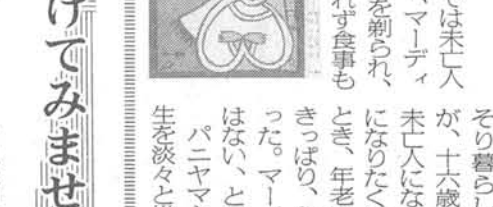 では未亡人
、マーディ
を剃られ、
れず食事も
そり暮らし
が、十六歳
未亡人にな
になりたく
とき、年老
きっぱり、
った。マー
はない、と
パニヤマ
生を淡々と
けてみませ